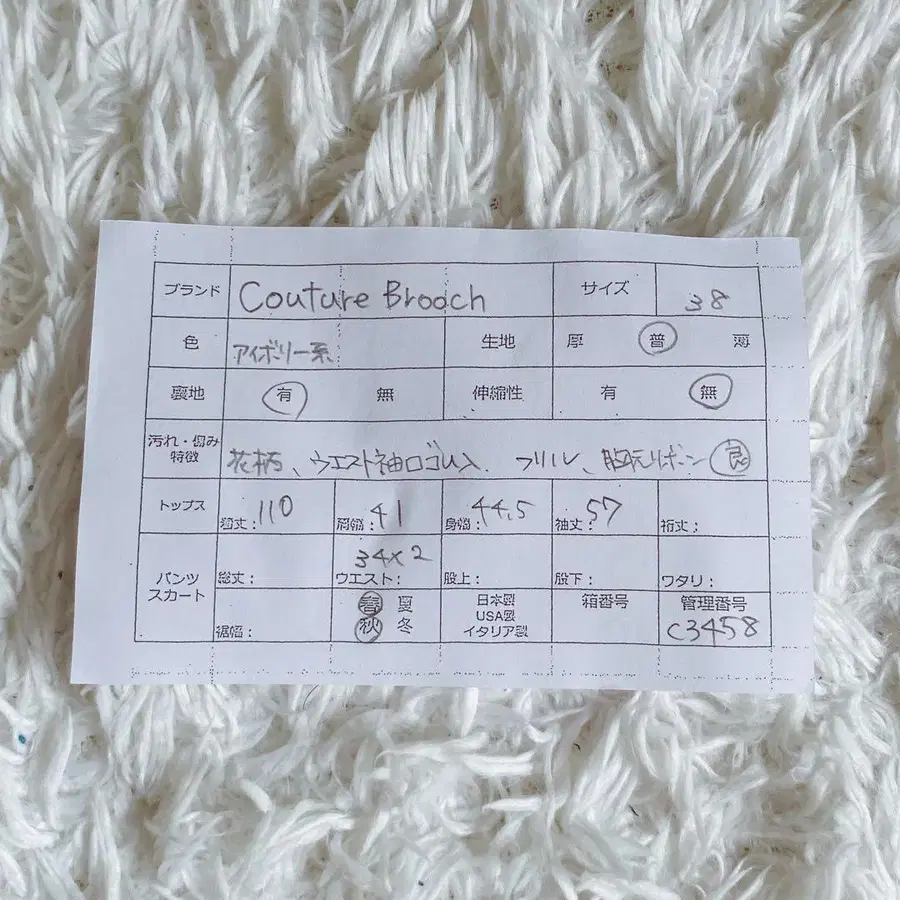 ブランド Couture Brooch サイズ 38
色 アイボリー系 生地 厚 普 薄
裏地 有 無 伸縮性 有 無
汚れ・傷み
特徴 花柄、ウエスト袖口ゴム入、フリル、胸元リボン 良
トップス 着丈: 110 肩幅: 41 身幅: 44.5 袖丈: 57 裄丈:
パンツ
スカート 総丈: ウエスト: 34×2 股上: 股下: ワタリ:
裾幅: 春 夏 秋 冬 日本製 USA製 イタリア製 箱番号 管理番号 C3458